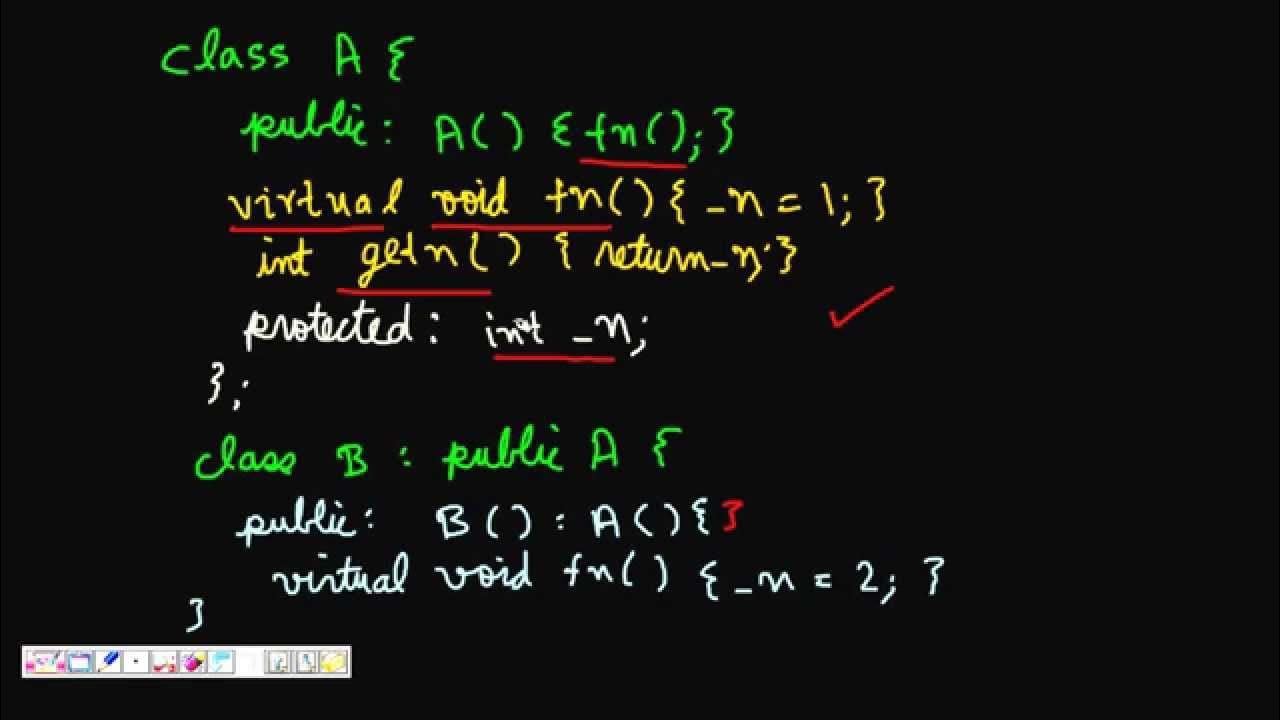 class A {
public: A() { fn(); }
virtual void fn() { _n = 1; }
int getn() { return _n; }
protected: int _n;
};
class B : public A {
public: B() : A() { }
virtual void fn() { _n = 2; }
}